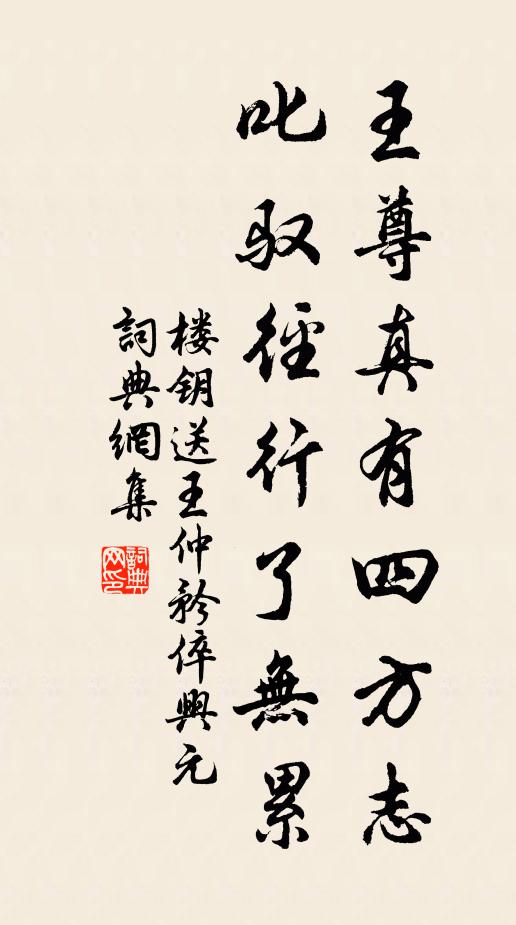 王尊真有四方志
叱驭徑行了無累
楼钥送王仲矜倅興元
詞典網集
詞典网印